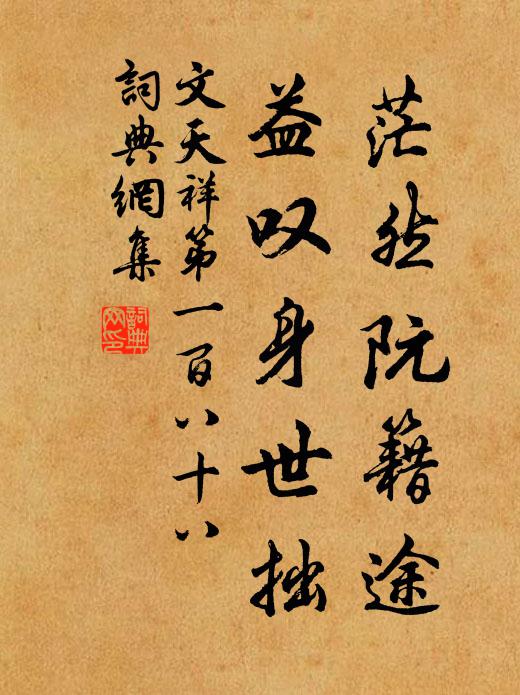 茫然阮籍途
益叹身世拙
文天祥第一百八十八
詞典網集
詞典网印